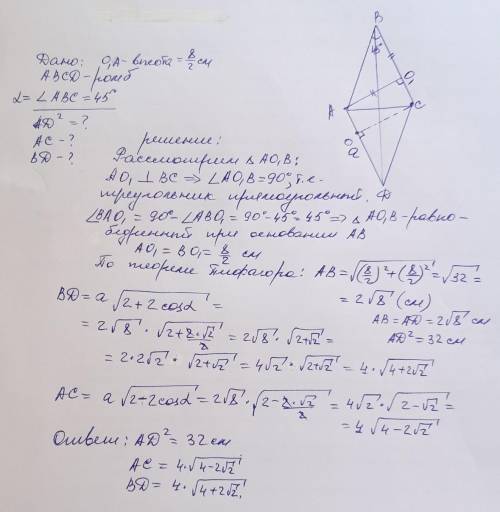 B
45°
O₁
A
C
O
a
D
Дано: O₁A - высота = 8/2 см
ABCD - ромб
α = ∠ABC = 45°
AD² = ?
AC - ?
BD - ?
решение:
Рассмотрим △ AO₁B:
AO₁ ⊥ BC ⇒ ∠AO₁B = 90°, т.е.
треугольник прямоугольный.
∠BAO₁ = 90° - ∠ABO₁ = 90° - 45° = 45° ⇒ △ AO₁B - равно-
бедренный при основании AB
AO₁ = BO₁ = 8/2 см
По теореме Пифагора: AB = √((8/2)² + (8/2)²) = √32 =
= 2√8 (см)
AB = AD = 2√8 см
AD² = 32 см
BD = a √(2+2cosα) =
= 2√8 · √(2 + 2·√2/2) = 2√8 · √(2+√2) =
= 2·2√2 · √(2+√2) = 4√2 · √(2+√2) = 4 · √(4+2√2)
AC = a √(2+2cosα) = 2√8 · √(2 - 2·√2/2) = 4√2 · √(2-√2) =
= 4 √(4-2√2)
Ответ: AD² = 32 см
AC = 4·√(4-2√2)
BD = 4·√(4+2√2).